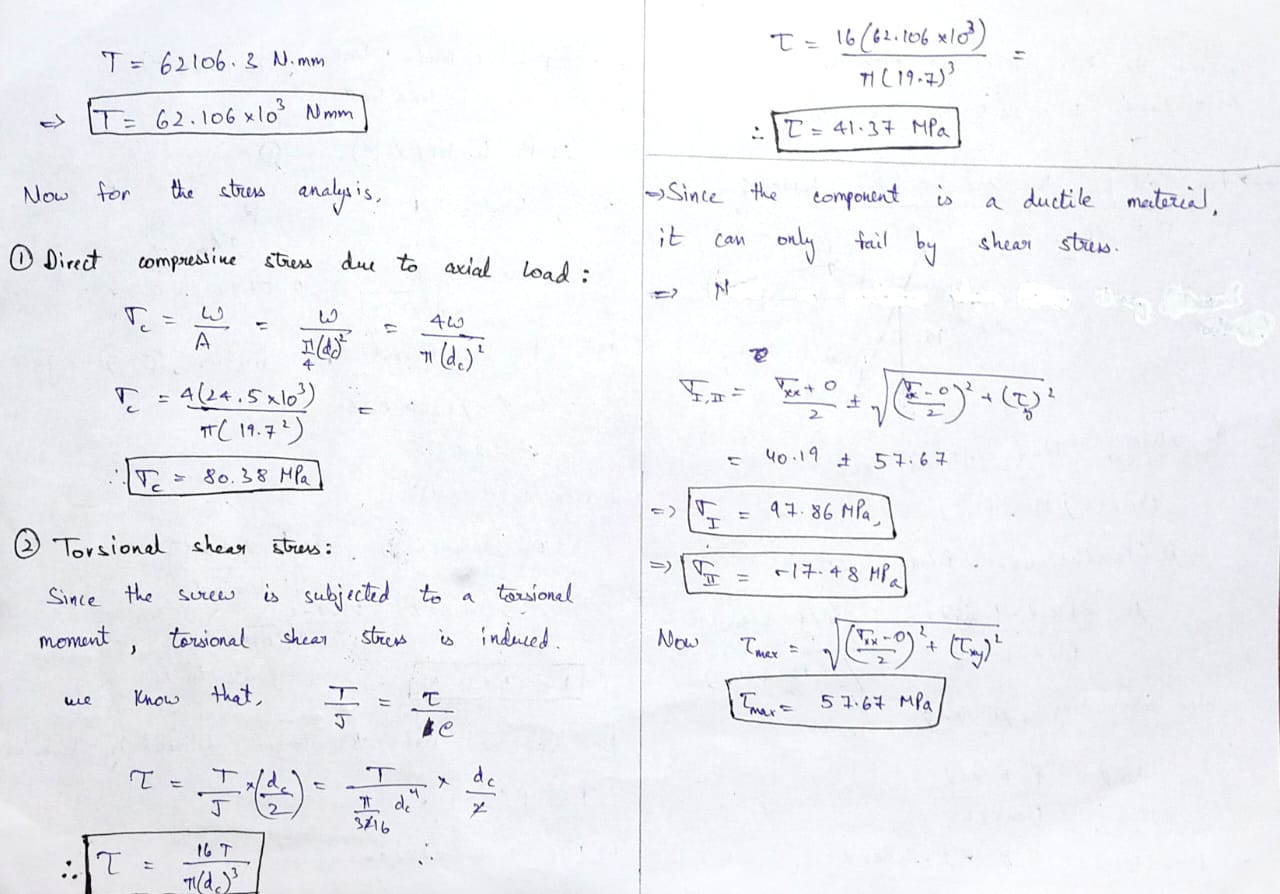 T = 62106.3 N.mm
⇒ T = 62.106 x10³ Nmm
Now for the stress analysis,
① Direct compressive stress due to axial load :
σc = W/A = W/(π/4 (dc)²) = 4W/(π (dc)²)
σc = 4(24.5 x10³)/(π( 19.7²)) =
∴ σc = 80.38 MPa
② Torsional shear stress:
Since the screw is subjected to a torsional
moment, torsional shear stress is induced.
we know that, T/J = τ/e
τ = T/J x (dc/2) = T/(π/32 dc⁴) x dc/2
16
∴ τ = 16T/(π(dc)³)
τ = 16(62.106 x10³)/(π(19.7)³) =
∴ τ = 41.37 MPa
→ Since the component is a ductile material,
it can only fail by shear stress.
⇒ N
σI,II = (σxx + 0)/2 ± √((σx - 0)/2)² + (τy)²
= 40.19 ± 57.67
=> σI = 97.86 MPa,
=> σII = -17.48 MPa
Now τmax = √((σxx - 0)/2)² + (τxy)²
τmax = 57.67 MPa